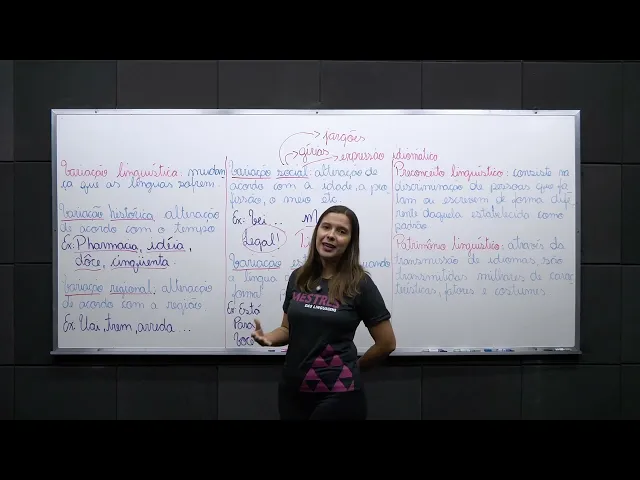 Variação linguística: mudan
ça que as línguas sofrem.
Variação histórica: alteração
de acordo com o tempo
Ex: Pharmacia, idéia,
dôce, cinqüenta.
Variação regional: alteração
de acordo com a região
Ex: Uai, trem, arreda ..
jargões
gírias
expressão idiomática
Variação social: alteração de
acordo com a idade, a pro
fissão, o meio etc
Ex:
legal!
Variação
quando
a língua
formal
Ex: Está
Para
Você
Preconceito linguístico: consiste na
discriminação de pessoas que fa
lam ou escrevem de forma dife
rente daquela estabelecida como
padrão
Patrimônio linguístico: através da
transmissão de idiomas são
transmitidas milhares de carac
terísticas, fatores e costumes.
MESTRES
DAS LINGUAGENS